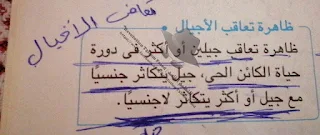 تعاقب الأجيال
ظاهرة تعاقب الأجيال
ظاهرة تعاقب جيلين أو أكثر فى دورة
حياة الكائن الحى، جيل يتكاثر جنسيًا
مع جيل أو أكثر يتكاثر لاجنسيًا.